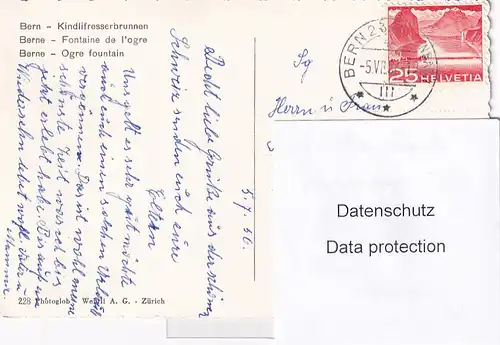 Bern - Kindlifresserbrunnen
Berne - Fontaine de l'ogre
Berne - Ogre fountain
BERN 2
-5.VII
III
25 HELVETIA
5.7.56.
Recht liebe Grüße aus der schönen
Schweiz senden euch eure
Eltern
Uns geht es sehr gut möchte
auch euch einen solchen Urlaub
vergönnen. Das ist wohl meine
schönste Zeit was ich bis
jetzt erlebt habe. Bis auf ein
Wiedersehn lebet wohl. Vater u
Mamma.
Sg
Herrn u Frau
Datenschutz
Data protection
228 Photoglob - Wehrli A. G. - Zürich